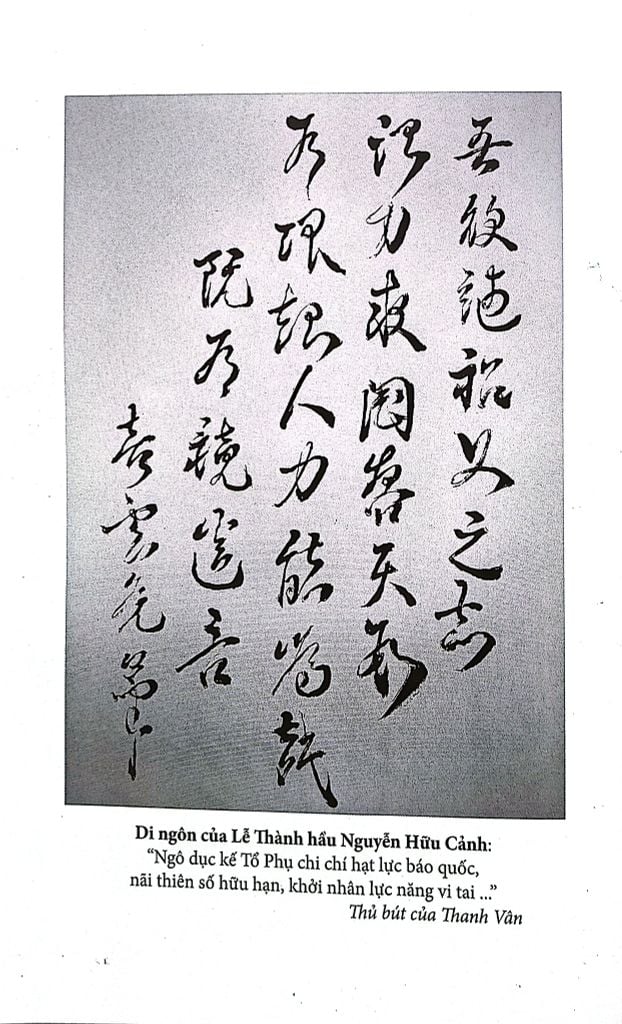 吾欲継祖父之志
竭力報國天数
有限人力能為哉
阮有鏡遺言
青雲
Di ngôn của Lễ Thành hầu Nguyễn Hữu Cảnh:
“Ngô dục kế Tổ Phụ chi chí hạt lực báo quốc,
nãi thiên số hữu hạn, khởi nhân lực năng vi tai ...”
Thủ bút của Thanh Vân